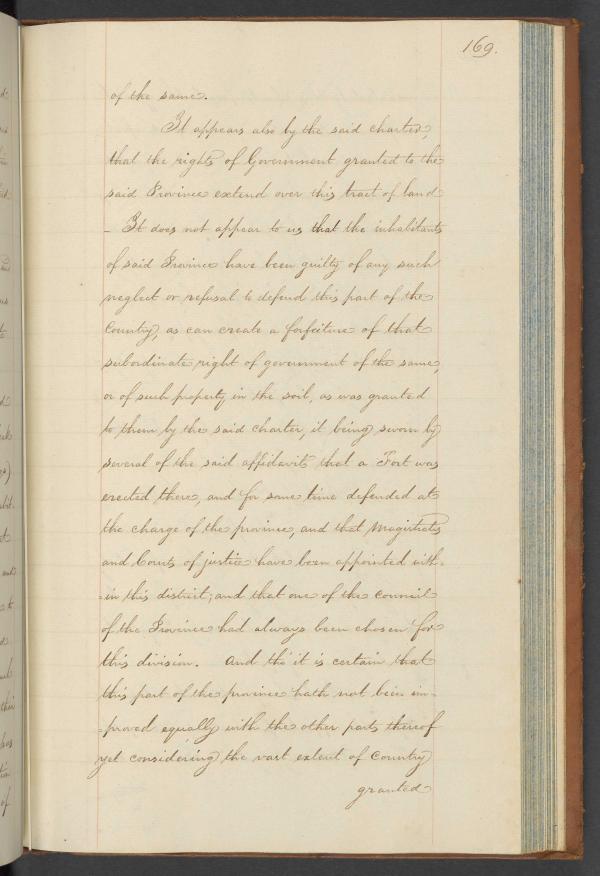 169.
of the same.
It appears also by the said charter,
that the rights of Government granted to the
said Province extend over this tract of land
- It does not appear to us that the inhabitants
of said Province have been guilty of any such
neglect or refusal to defend this part of the
Country, as can create a forfeiture of that
subordinate right of government of the same,
or of such property in the soil, as was granted
to them by the said charter, it being sworn by
several of the said affidavits that a Fort was
erected there, and for some time defended at
the charge of the province, and that Magistrates
and Courts of justice have been appointed with-
-in this district; and that one of the council
of the Province had always been chosen for
this division. And tho' it is certain that
this part of the province hath not been im-
-proved equally with the other parts thereof
yet considering the vast extent of Country
granted